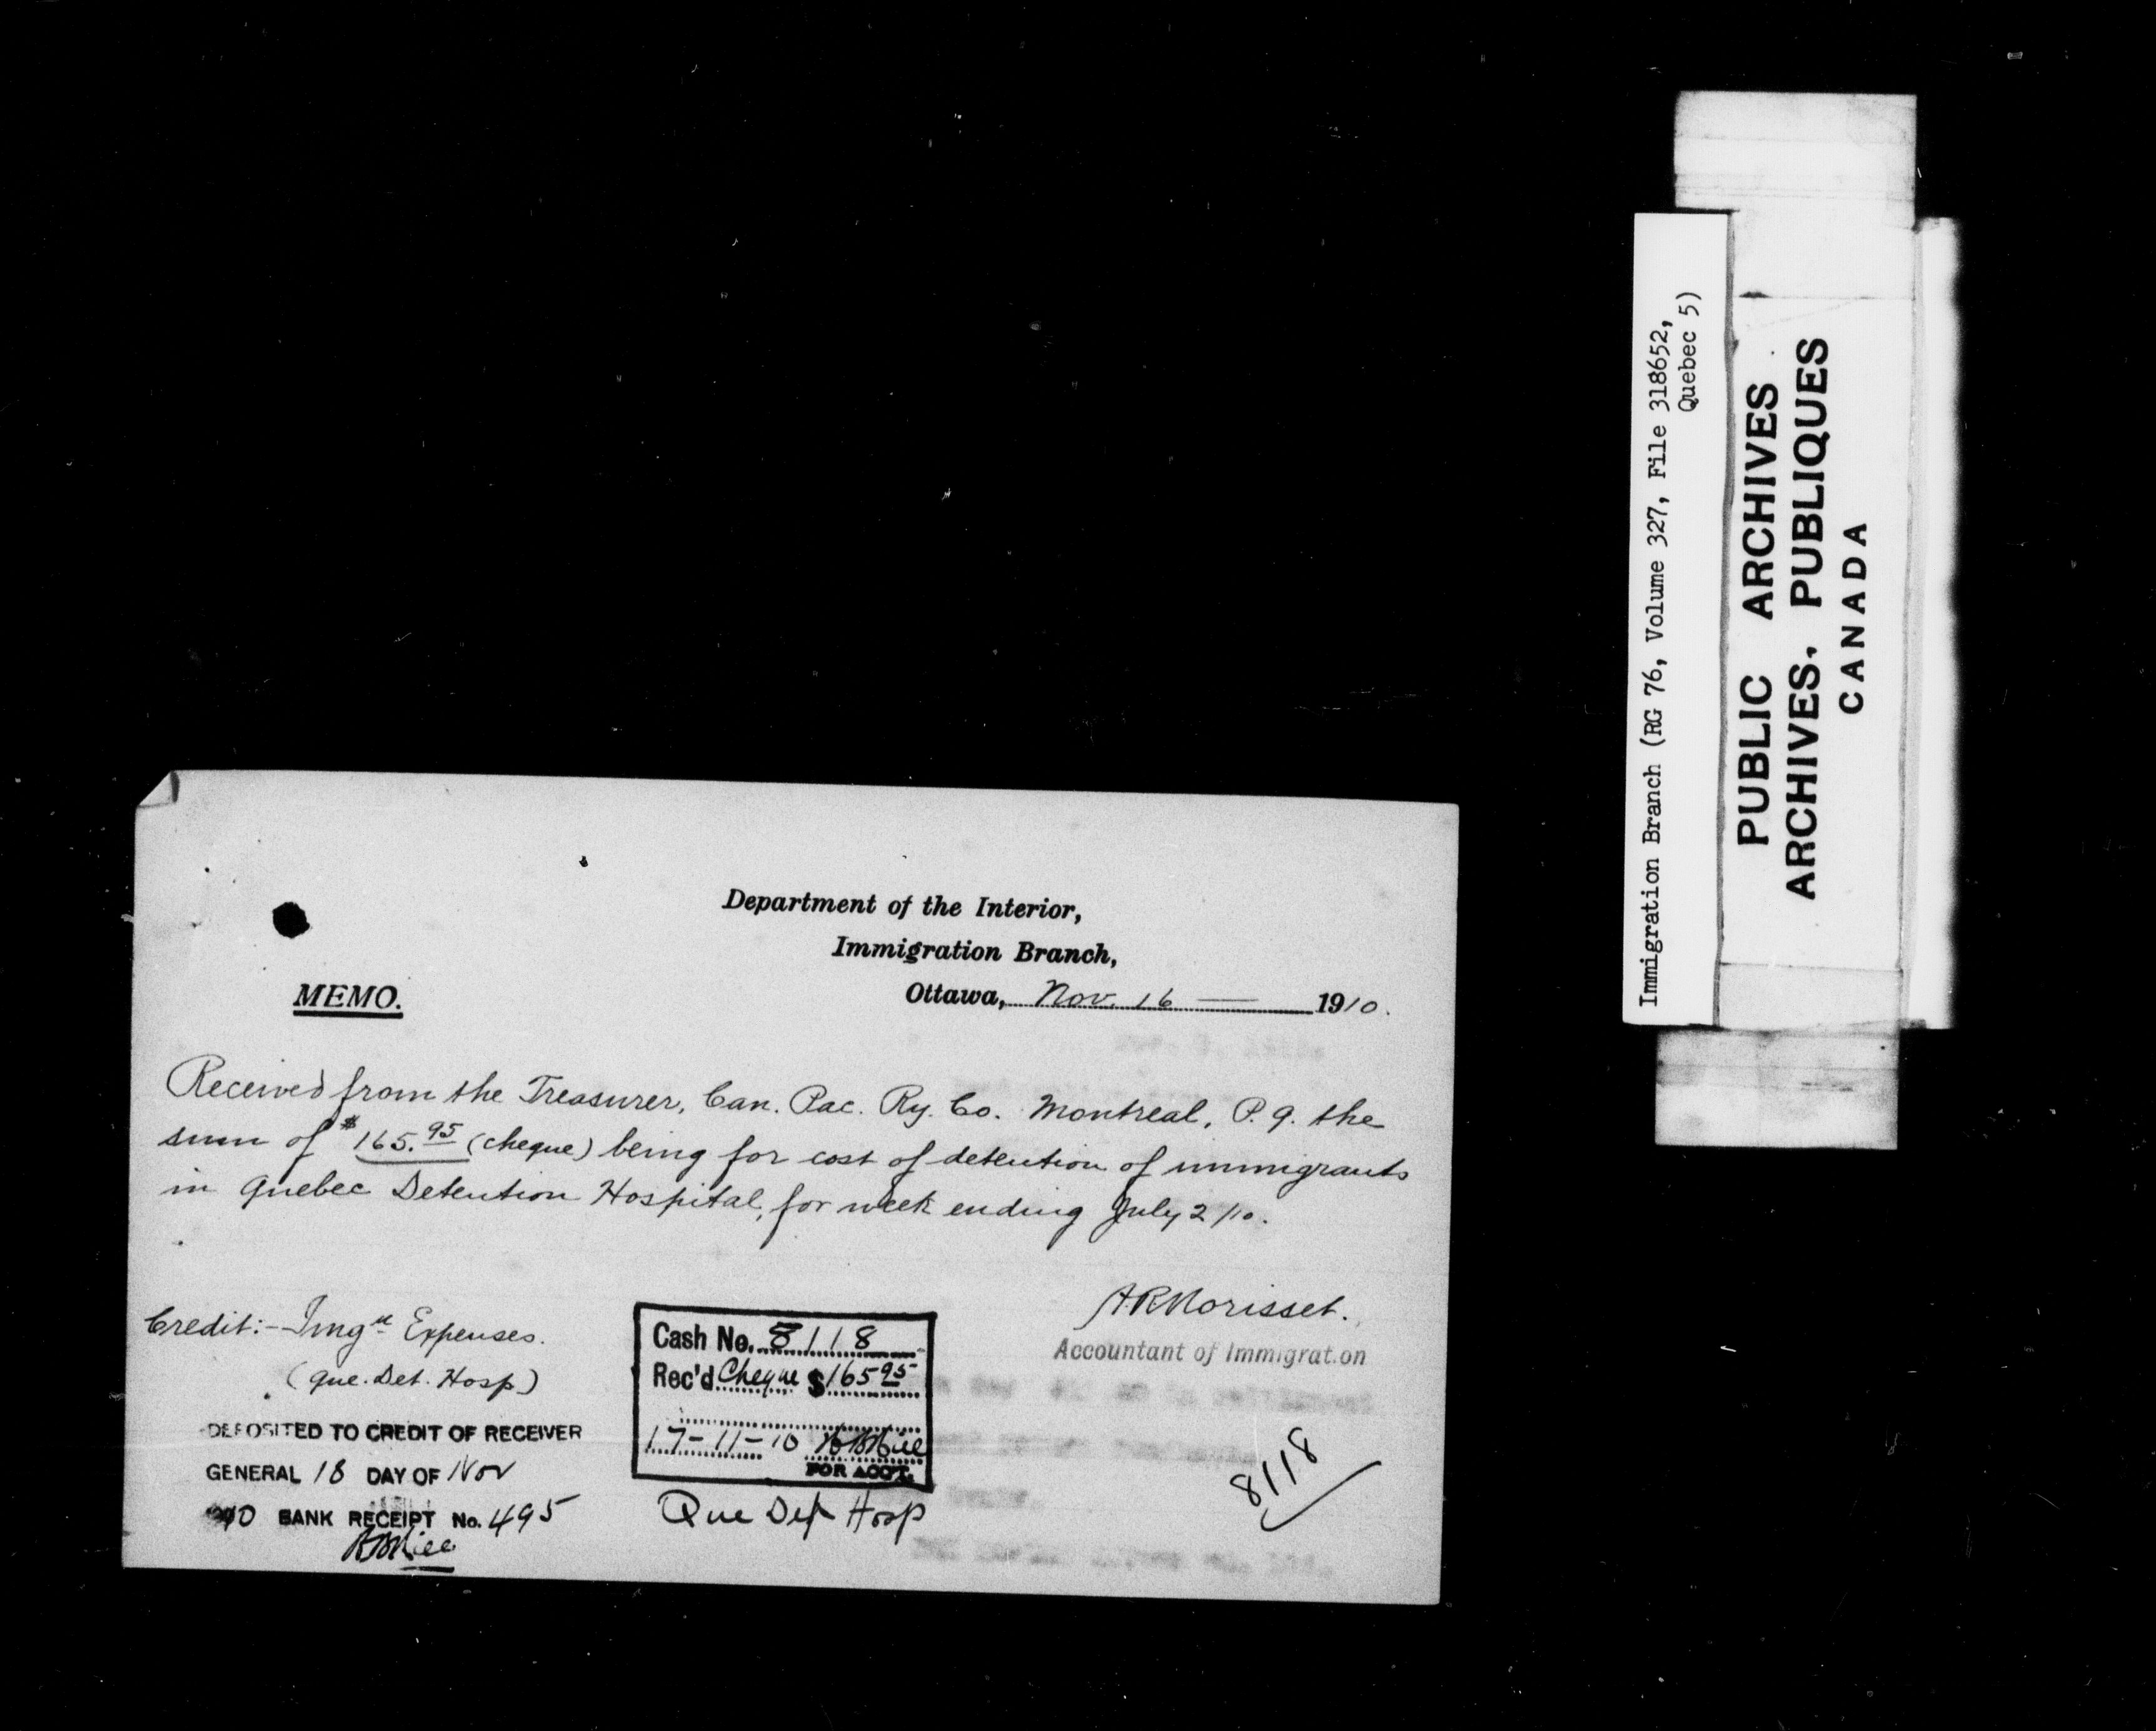 Department of the Interior,
Immigration Branch,
MEMO.
Ottawa, Nov. 16 — 1910.
Received from the Treasurer, Can. Pac. Ry. Co. Montreal, P.Q. the
sum of $165.95 (cheque) being for cost of detention of immigrants
in Quebec Detention Hospital, for week ending July 2/10.
A.R.Morisset.
Accountant of Immigration
Credit:- Imgn Expenses.
(Que. Det. Hosp)
DEPOSITED TO CREDIT OF RECEIVER
GENERAL 18 DAY OF Nov
BANK RECEIPT No. 495
Cash No. 8118
Rec'd Cheque $165 95
17-11-10
FOR ACCT.
Que Det Hosp
8118
Immigration Branch (RG 76, Volume 327, File 318652,
Quebec 5)
PUBLIC ARCHIVES
ARCHIVES. PUBLIQUES
CANADA